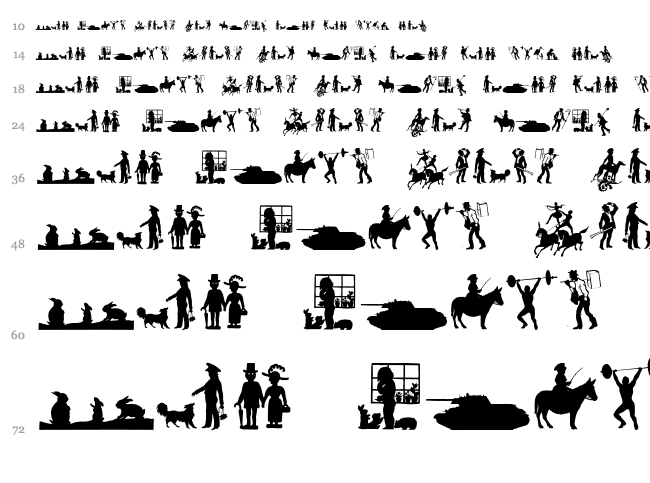 10
14
18
24
36
48
60
72